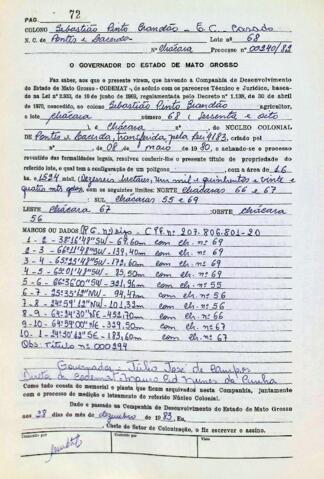 PAG. 72
COLONO Sebastião Pinto Brandão - E.C. Casado
N. C. de Pontes e Lacerda Lote nº 68
Nº Chácara Processo nº 00240/82
O GOVERNADOR DO ESTADO DE MATO GROSSO
Faz saber, aos que a presente virem, que havendo a Companhia de Desenvolvimento
do Estado de Mato Grosso - CODEMAT -, de acôrdo com os pareceres Técnico e Jurídico, basea-
da na Lei nº 2.933, de 19 de junho de 1969, regulamentada pelo Decreto nº 1.138, de 30 de
abril de 1970, concedido, ao colono Sebastião Pinto Brandão agricultor,
o lote chácara número 68 (sessenta e oito
) chácara do NÚCLEO COLONIAL
DE Pontes e Lacerda, transferida pela Lei 4183, criado
nº de 08 de maio de 1980, e achando-se o processo
revestido das formalidades legais, resolveu conferir-lhe o presente título de propriedade do
referido lote, o qual tem a configuração de um polígono com a área de 16
ha. 1524 m2
com os seguintes limites: NORTE chácaras 66 e 67
: SUL chácaras 55 e 69
LESTE chácara 67 : OESTE chácara
56
MARCOS OU DADOS C.P.F. nº 207.806.801-20
1 - 2 - 38º16'48"SW - 69,60m com ch. nº 69
2 - 3 - 66º11'48"SW - 139,40m com ch. nº 69
3 - 4 - 65º23'48"SW - 172,60m com ch. nº 69
4 - 5 - 62º01'48"SW - 85,50m com ch. nº 69
5 - 6 - 66º36'00"SW - 321,96m com ch. nº 55
6 - 7 - 25º35'12"NW - 94,47m com ch. nº 56
7 - 8 - 24º59'12"NW - 101,32m com ch. nº 56
8 - 9 - 64º24'30"NE - 452,70m com ch. nº 66
9 - 10 - 64º59'00"NE - 329,50m com ch. nº 67
10 - 1 - 24º30'12"SE - 183,60m com ch. nº 67
Obs: Título nº 000299
Governador - Júlio José de Campos
Como tudo consta do memorial e planta que ficam arquivados nesta Companhia, juntamente
com o processo de medição e loteamento do referido Núcleo Colonial.
Dado e passado na Companhia de Desenvolvimento do Estado de Mato Grosso
aos 28 dias do mês de dezembro de 1983. Eu,
Chefe do Setor de Colonização, o fiz escrever e assino.